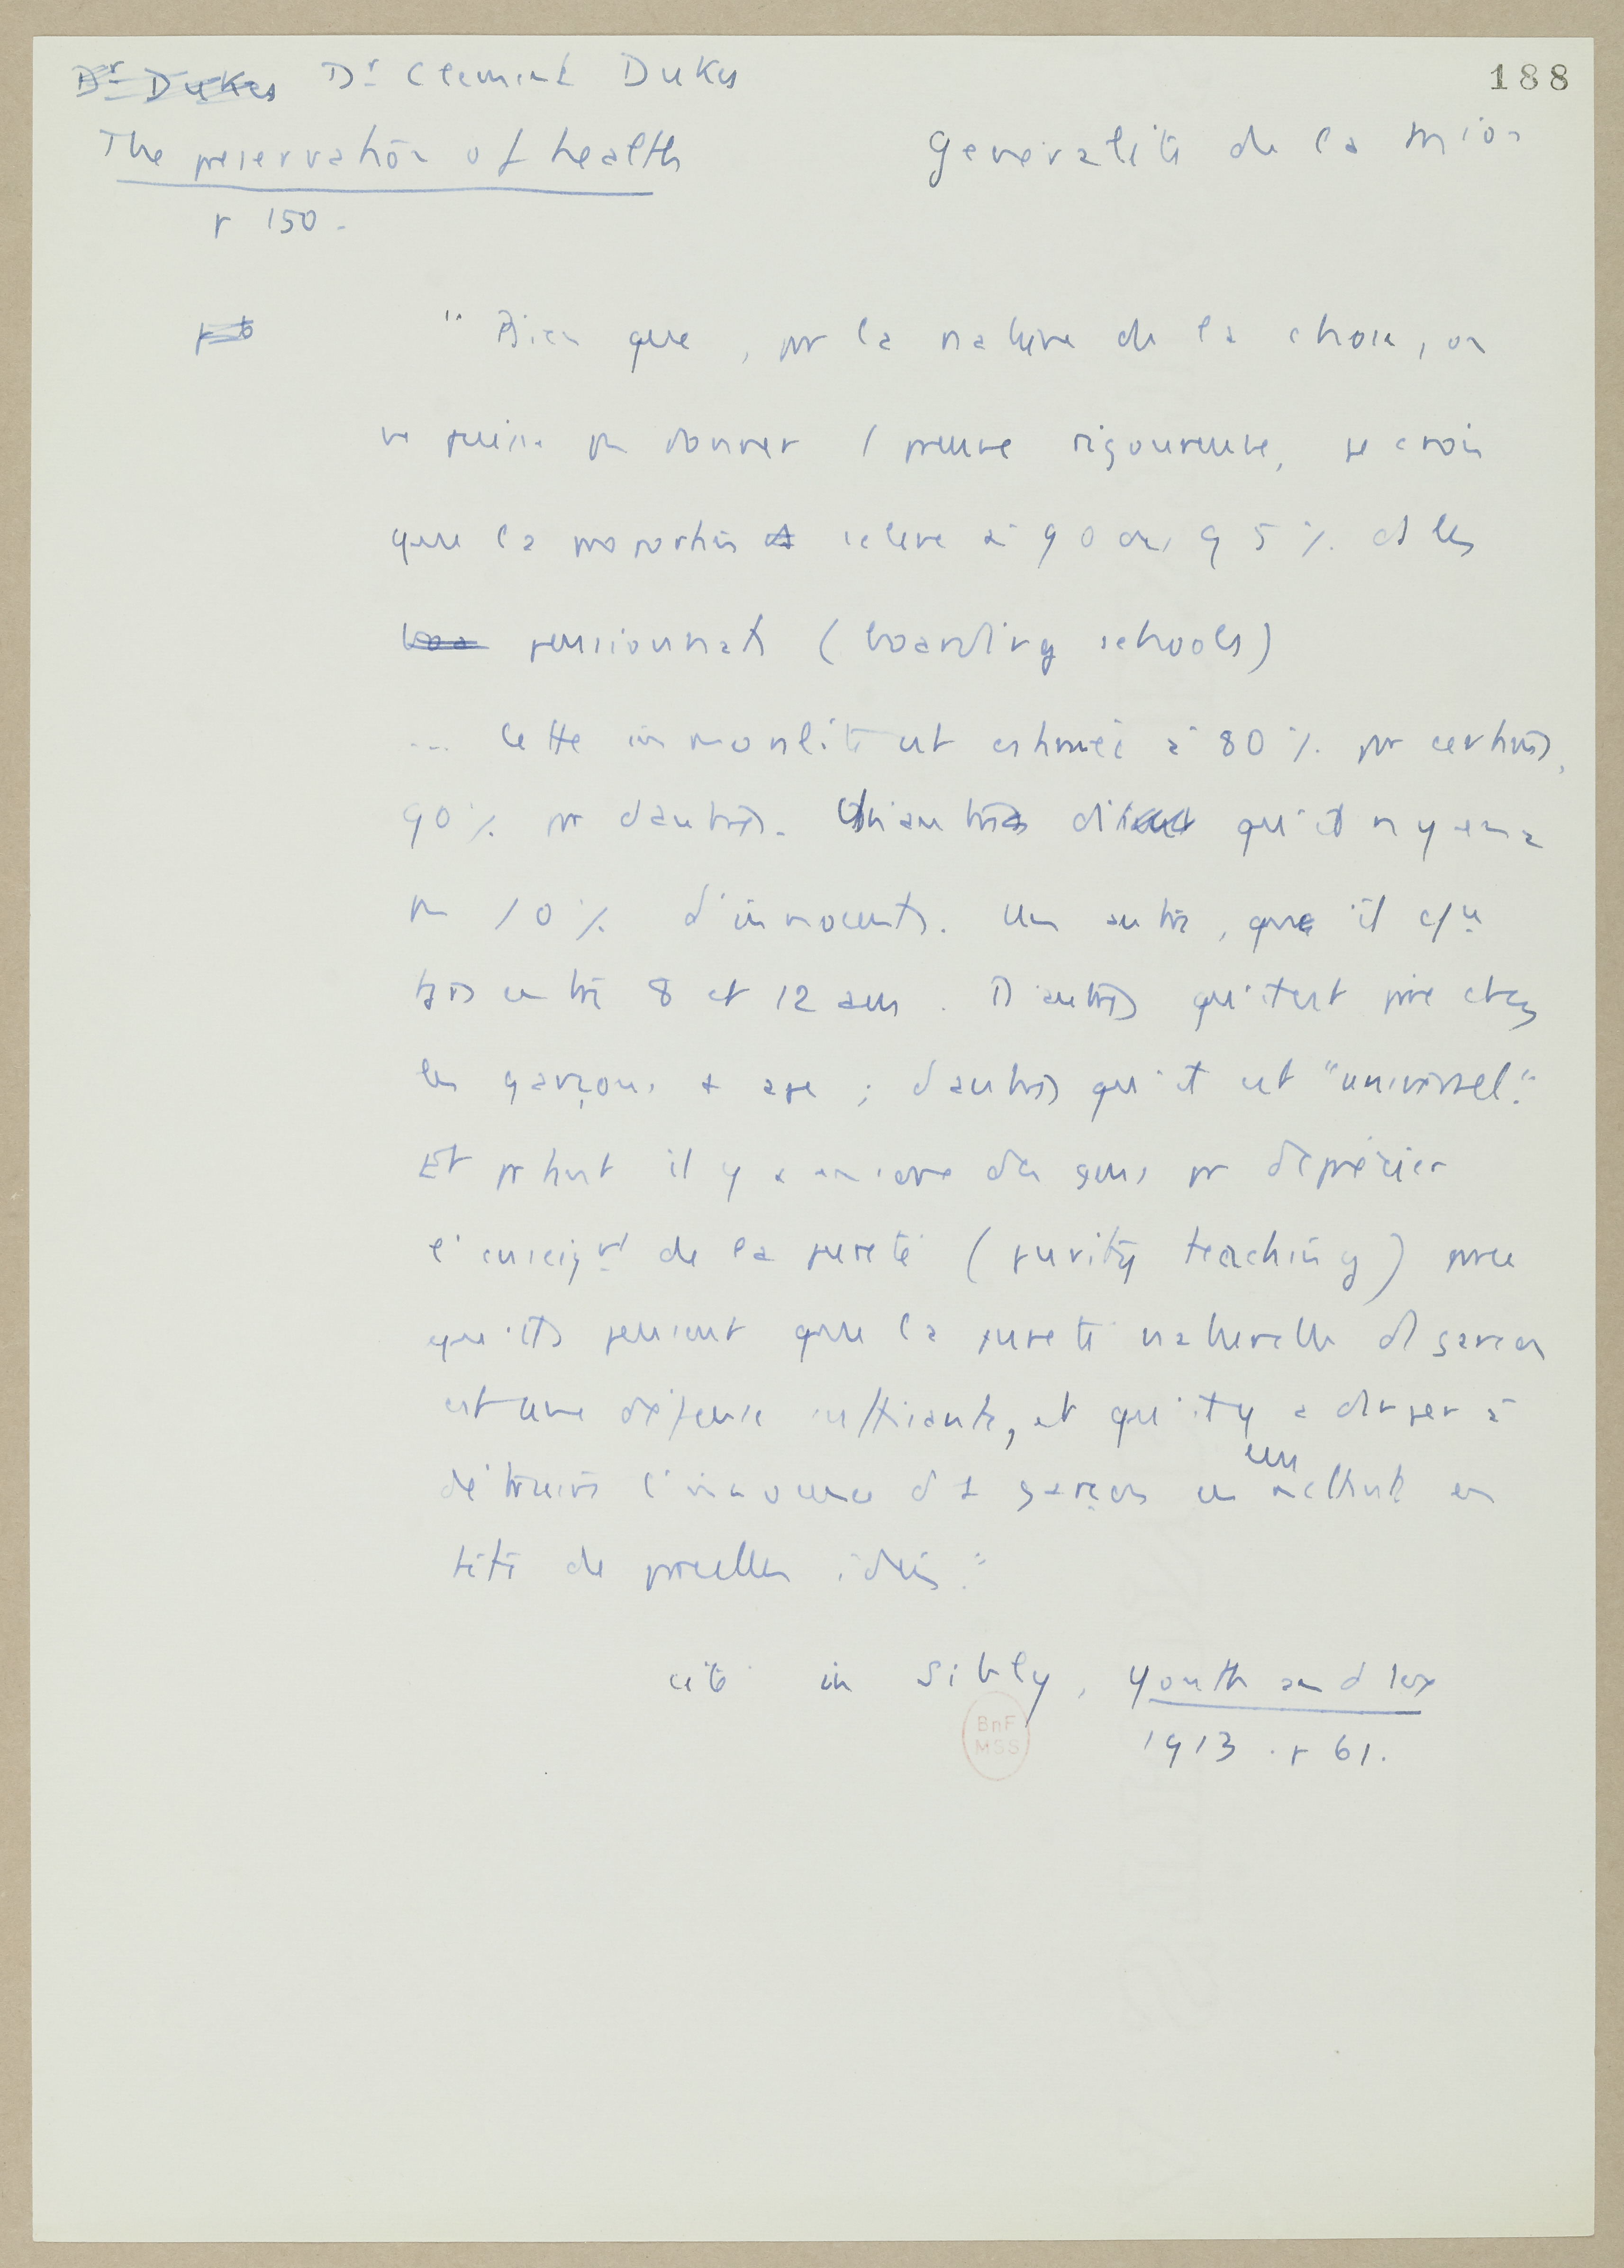 188
Dr Dukes Dr Clement Dukes
The preservation of health
Généralité de la mion
p 150.
"Bien que, pr la nature de la chose, on
ne puisse pas donner 1 preuve rigoureuse, je crois
que la proportion s'élève à 90 ou 95 % ds les
boa pensionnats (boarding schools)
... Cette immoralité est estimée à 80 % par certains,
90 % par d'autres. D'autres disent qu'il n'y en a
pas 10 % d'innocents. Un autre, que il
entre 8 et 12 ans. D'autres qu'il est pire chez
les garçons + age ; d'autres qu'il est "universel".
Et pourtant il y a encore des gens pr déprécier
l'enseignt de la pureté (purity teaching) parce
qu'ils pensent que la pureté naturelle ds garçons
est une défense suffisante, et qu'il y a danger à
détruire l'innocence d1 garçon en mettant en
tête de pareilles idées."
cité in Sibly, Youth and sex
BnF
MSS
1913 . p 61.